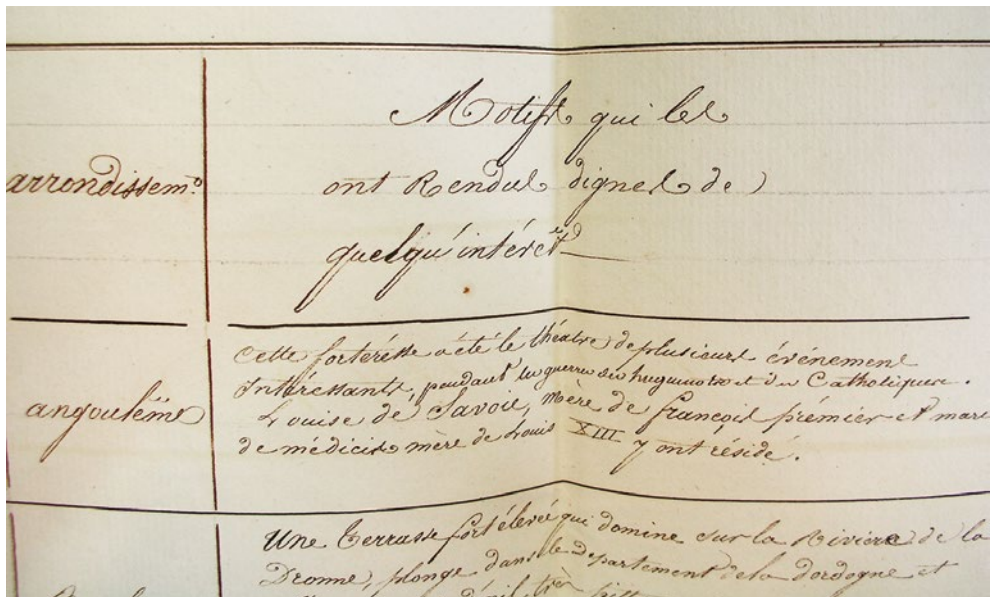 Motifs qui les
arrondissem.t
ont Rendues dignes de
quelqu'intérêt
Cette forterésse a été le théatre de plusieurs événement
Intéressants, pendant les guerres des huguenots et des Catholiques.
angoulême
Louise de Savoie, mère de françois prémier et marie
de médicis mère de Louis XIII y ont résidé.
Une Terrasse fort élevée qui domine sur la Riviere de la
Dronne, plonge dans le département de la dordogne et